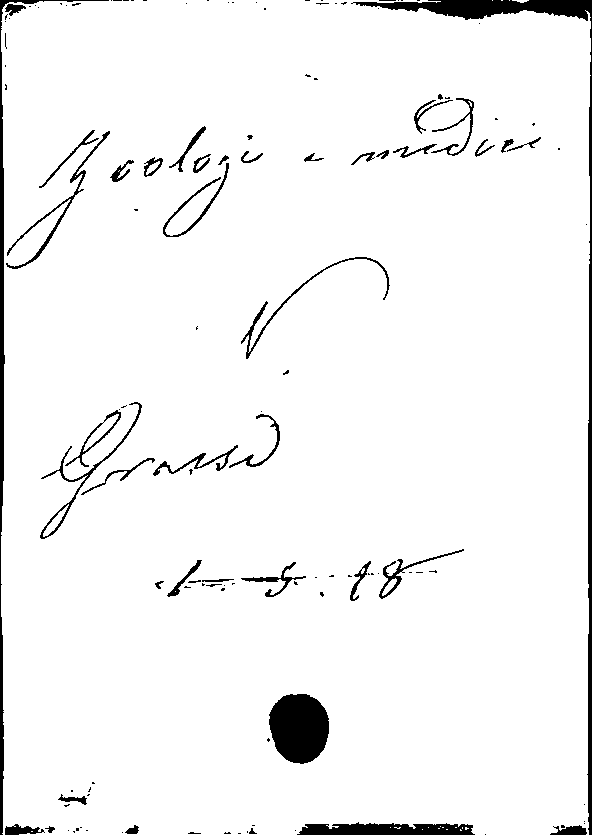 Zoologi e medici
V
Grassi
1. 5. 98